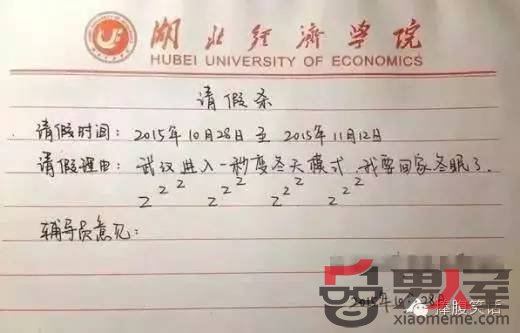 湖北经济学院
HUBEI UNIVERSITY OF ECONOMICS
请假条
请假时间：2015年10月28日至2015年11月12日
请假理由：武汉进入一秒变冬天模式，我要回家冬眠了.
z z z z z z z z z z z z
辅导员意见：
2015年10月28日
男人屋
xiaomeme.com
捧腹笑话